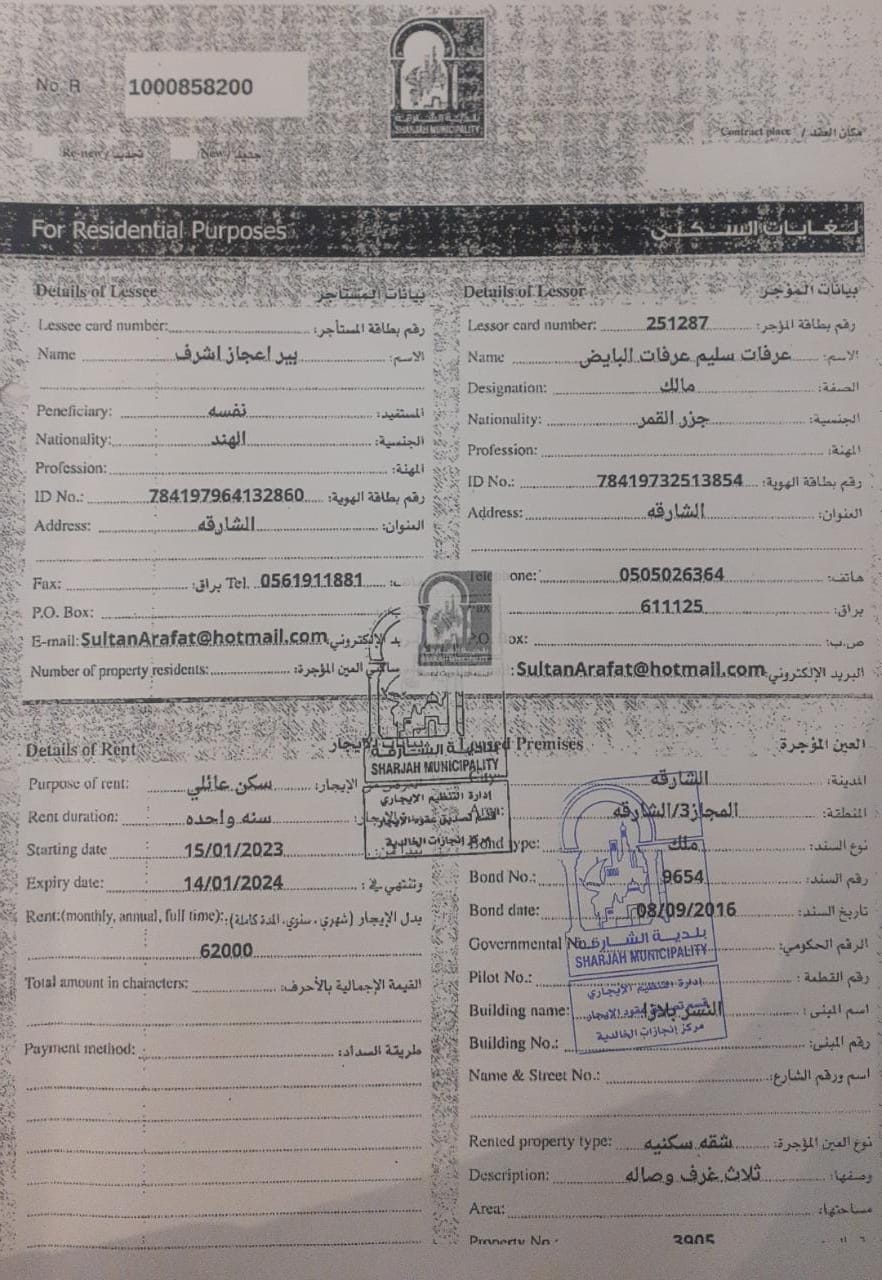 No. R 1000858200
SHARJAH MUNICIPALITY
Contract place / مكان العقد
Re-new / تجديد New / جديد
For Residential Purposes لغايات السكنى
Details of Lessee بيانات المستأجر
Lessee card number: رقم بطاقة المستأجر:
Name بير اعجاز اشرف الاسم:
Peneficiary: نفسه المستفيد:
Nationality: الهند الجنسية:
Profession: المهنة:
ID No.: 784197964132860 رقم بطاقة الهوية:
Address: الشارقه العنوان:
Fax: براق: Tel. 0561911881
P.O. Box:
E-mail: SultanArafat@hotmail.com
Number of property residents: العين المؤجرة:
Details of Lessor بيانات المؤجر
Lessor card number: 251287 رقم بطاقة المؤجر:
Name عرفات سليم عرفات البايض الاسم:
Designation: مالك الصفة:
Nationality: جزر القمر الجنسية:
Profession: المهنة:
ID No.: 78419732513854 رقم بطاقة الهوية:
Address: الشارقه العنوان:
one: 0505026364 هاتف:
611125 براق:
ox: ص.ب:
: SultanArafat@hotmail.com البريد الإلكتروني
Details of Rent
Purpose of rent: سكن عائلي الإيجار:
Rent duration: سنه واحده
Starting date 15/01/2023
Expiry date: 14/01/2024 وتنتهي في:
Rent:(monthly, annual, full time): بدل الإيجار (شهري، سنوي، المدة كاملة):
62000
Total amount in characters: القيمة الإجمالية بالأحرف:
Payment method: طريقة السداد:
Premises العين المؤجرة
الشارقه المدينة:
المجاز3/الشارقه المنطقة:
Bond type: ملك نوع السند:
Bond No.: 9654 رقم السند:
Bond date: 08/09/2016 تاريخ السند:
Governmental No. الرقم الحكومي:
Pilot No.: رقم القطعة:
Building name: النسر بلازا اسم المبنى:
Building No.: رقم المبنى:
Name & Street No.: اسم ورقم الشارع:
Rented property type: شقه سكنيه نوع العين المؤجرة:
Description: ثلاث غرف وصاله وصفها:
Area: مساحتها:
Property No.: 3905
بلدية الشارقة
SHARJAH MUNICIPALITY
إدارة التنظيم الايجاري
قسم تصديق عقود الإيجار
مركز إنجازات الخالدية
بلدية الشارقة
SHARJAH MUNICIPALITY
إدارة التنظيم الايجاري
مركز إنجازات الخالدية